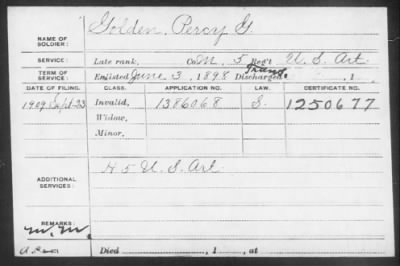 NAME OF SOLDIER: Golden, Percy G.
SERVICE: Late rank, Co. M. 5 Reg't U. S. Art.
TERM OF SERVICE: Enlisted June 3, 1898 Discharged Trans., 1
DATE OF FILING. CLASS. APPLICATION NO. LAW. CERTIFICATE NO.
1909 Sept. 23 Invalid, 1386068 S. 1250677
Widow,
Minor,
ADDITIONAL SERVICES: H 5 U. S. Art.
REMARKS:
Died , 1 , at